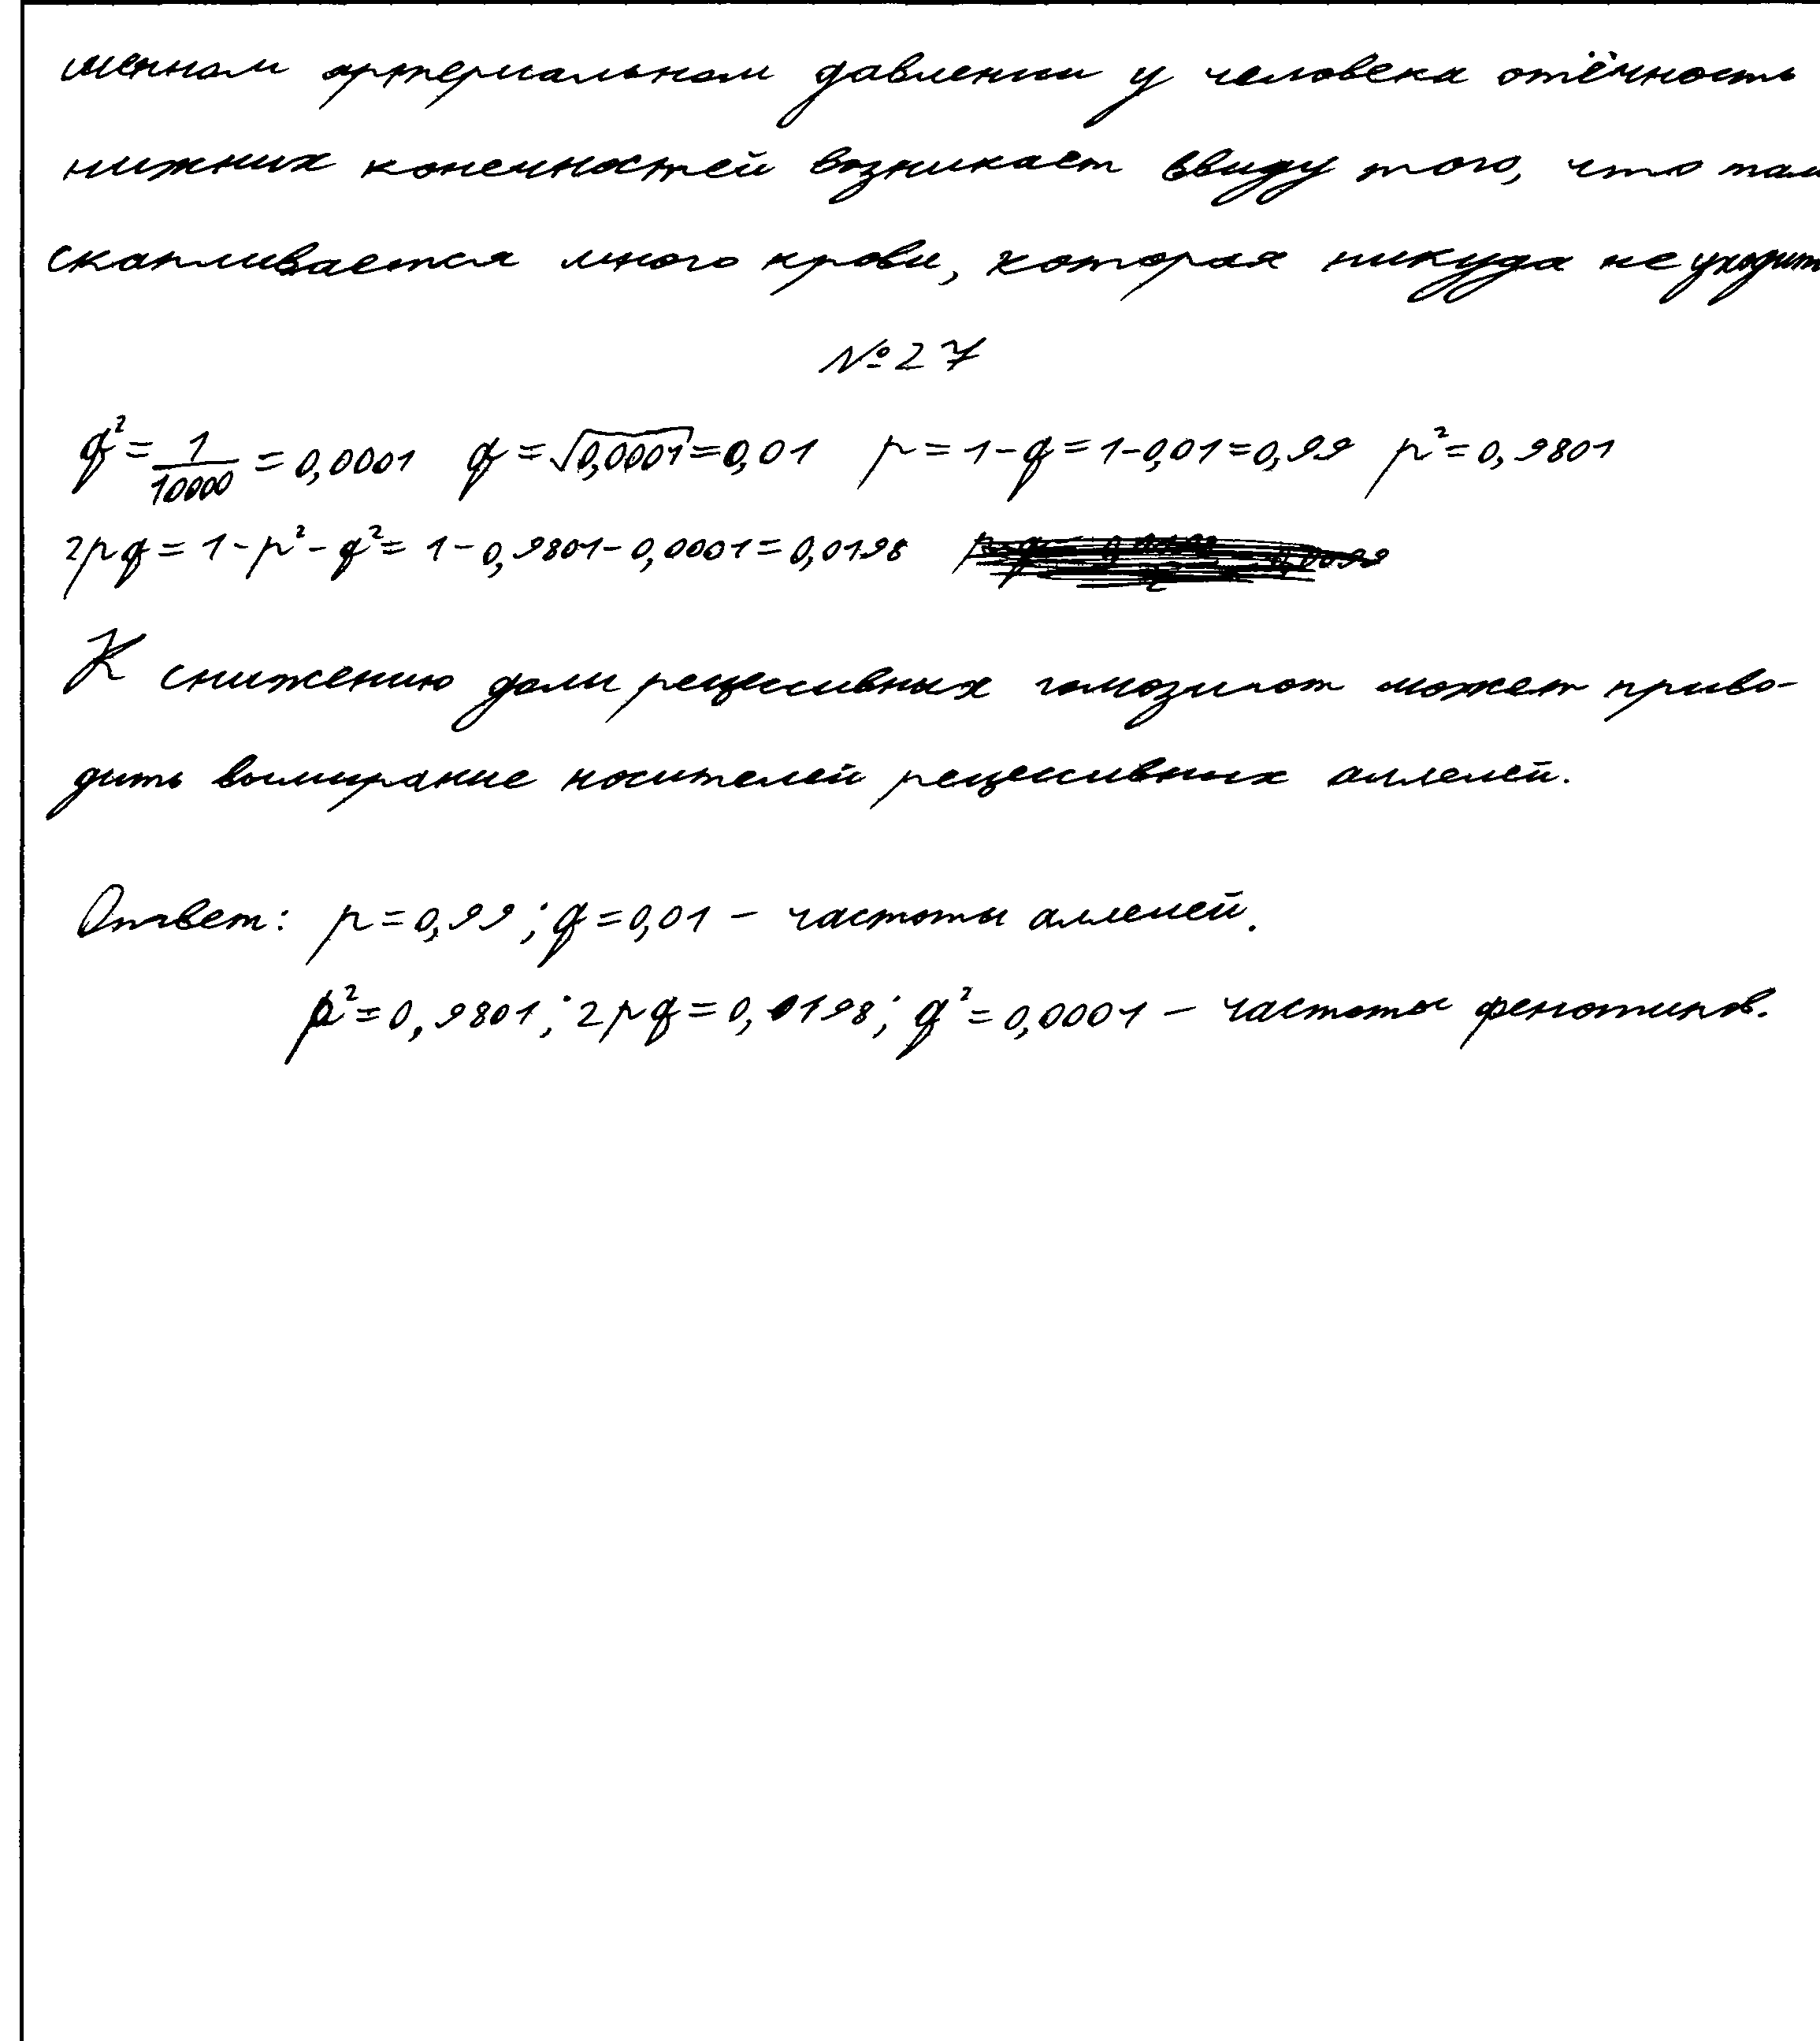 шенном артериальном давлении у человека отёчность
нижних конечностей возникает ввиду того, что там
скапливается много крови, которая никуда не уходит
№27
q²=1/10000=0,0001 q=√0,0001=0,01 p=1-q=1-0,01=0,99 p²=0,9801
2pq=1-p²-q²=1-0,9801-0,0001=0,0198
К снижению доли рецессивных гомозигот может приво-
дить вымирание носителей рецессивных аллелей.
Ответ: p=0,99; q=0,01 – частоты аллелей.
p²=0,9801; 2pq=0,0198; q²=0,0001 – частоты фенотипов.